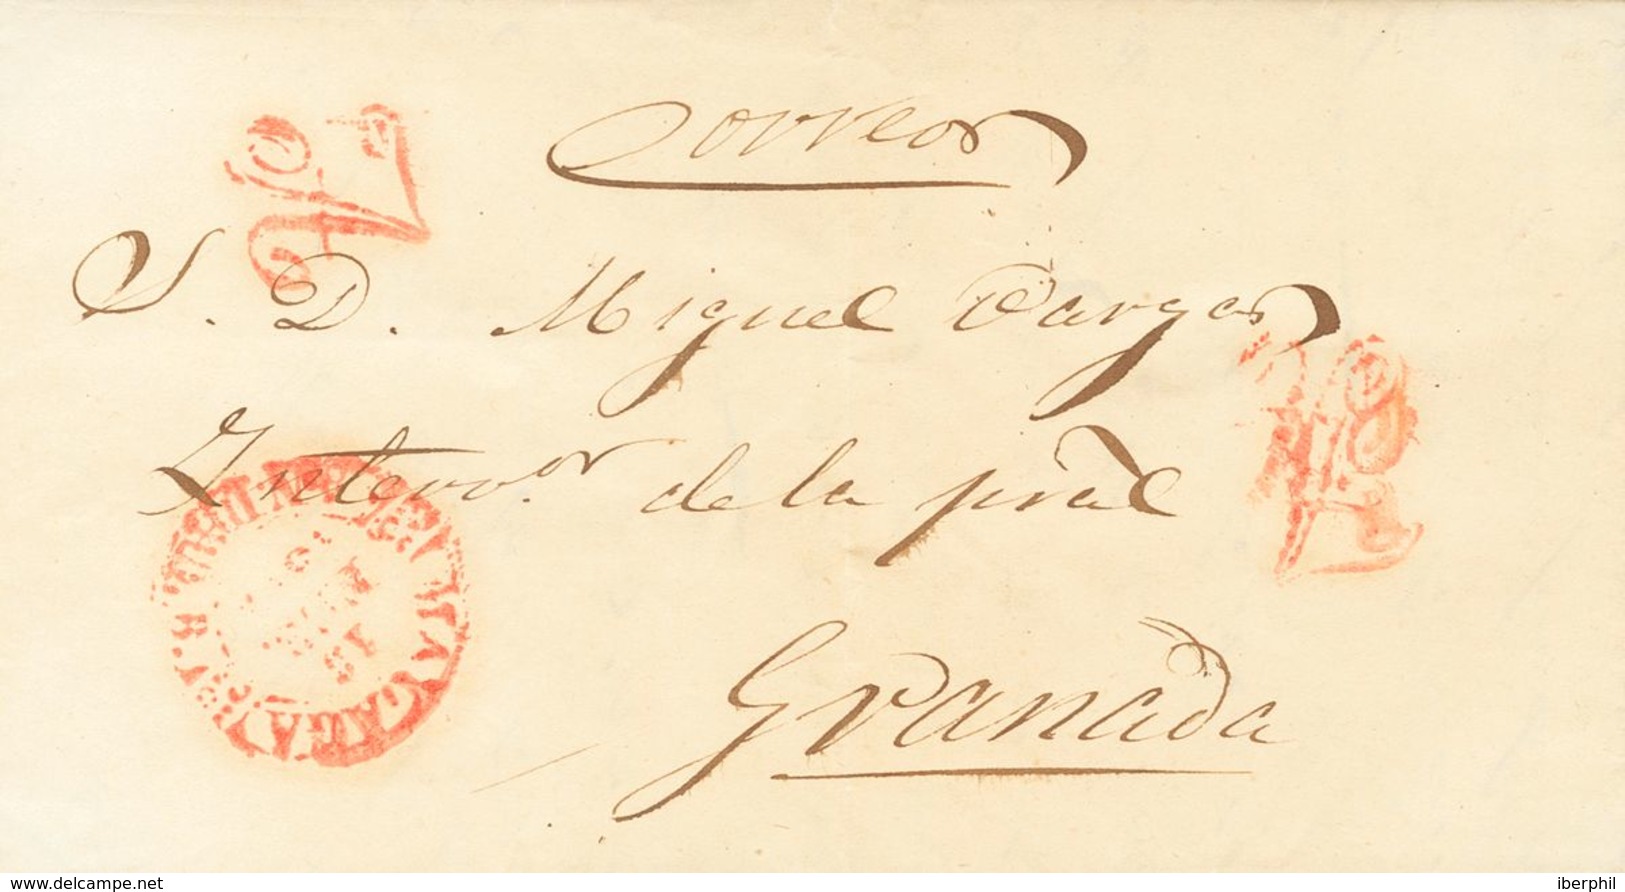 Correos
S. D. Miguel Vargas
Intervor. de la pral
Granada
www.delcampe.net
iberphil